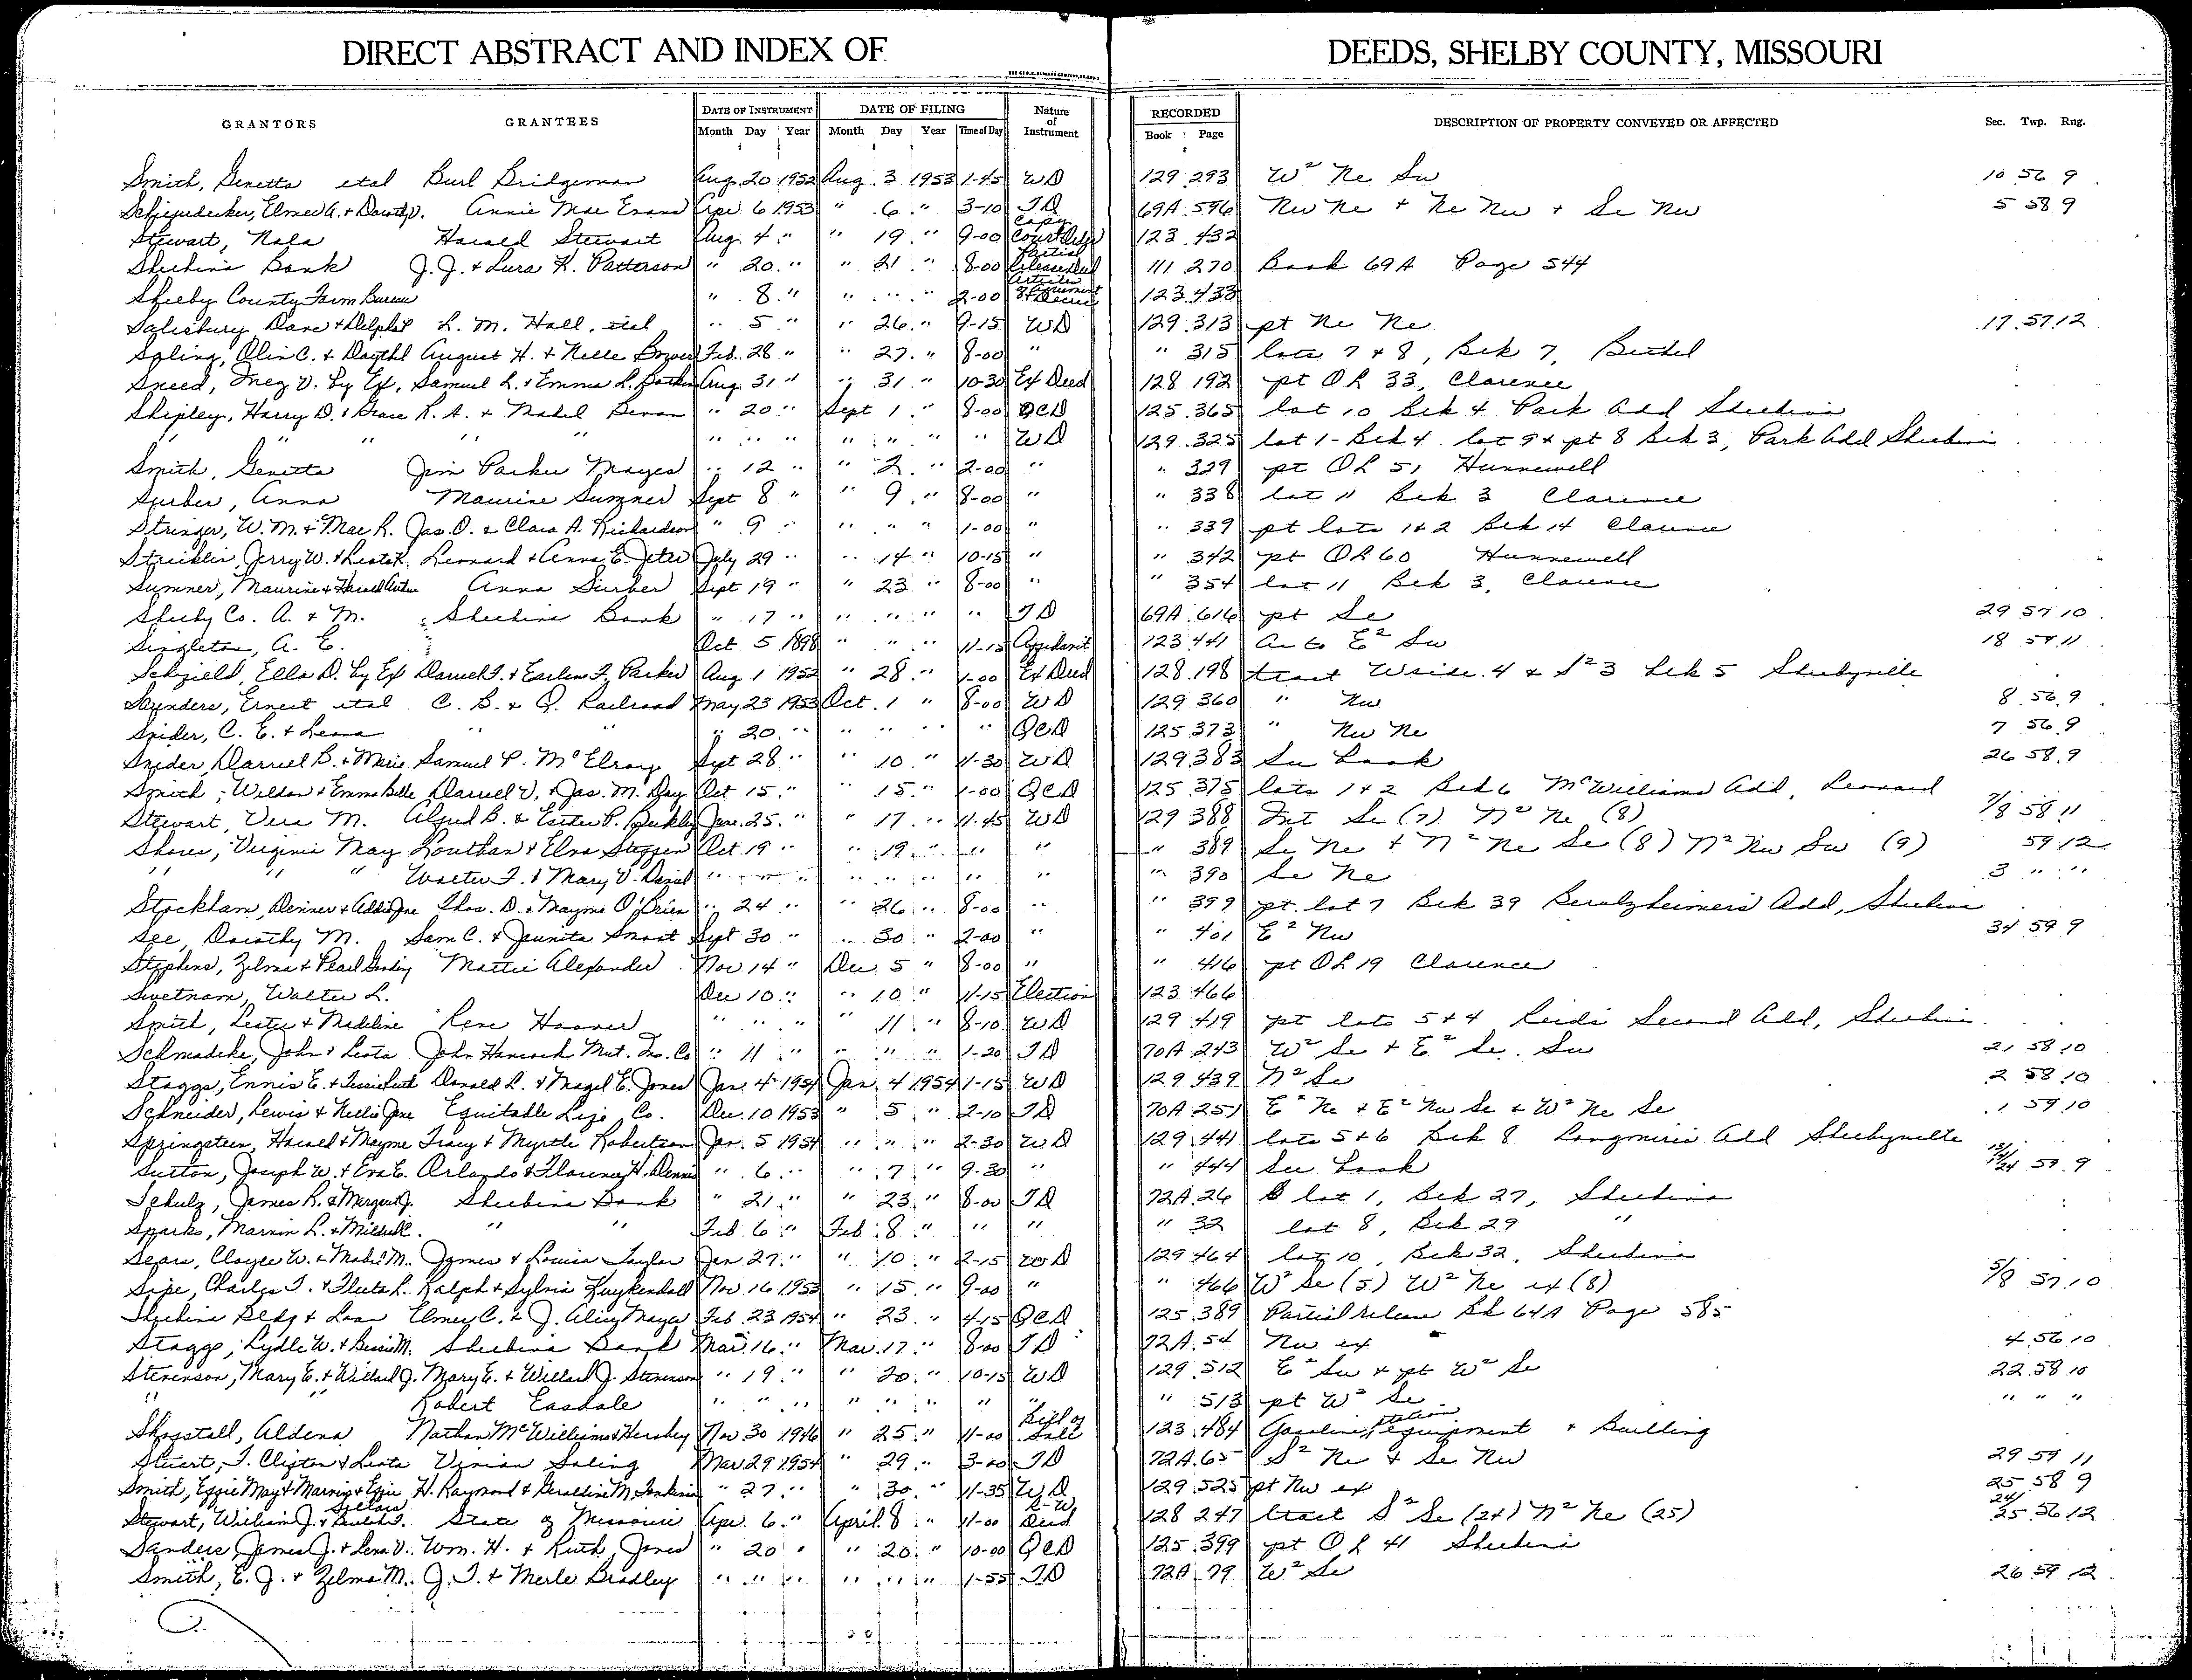 DIRECT ABSTRACT AND INDEX OF DEEDS, SHELBY COUNTY, MISSOURI
GRANTORS GRANTEES DATE OF INSTRUMENT DATE OF FILING Nature of Instrument RECORDED DESCRIPTION OF PROPERTY CONVEYED OR AFFECTED Sec. Twp. Rng.
Month Day Year Month Day Year Time of Day Book Page
Smith, Genetta etal Burl Bridgeman Aug. 20 1952 Aug. 3 1953 1-45 WD 129 293 W² Ne Sw 10 56 9
Elmer A. + Dorothy V. Annie Mae Evans Apr 6 1953 " 6 " 3-10 TD 69A 596 Nw Ne + Ne Nw + Se Nw 5 58 9
Stewart, Nola Harold Stewart Aug. 4 " " 19 " 9-00 Copy Court 123 432
Shelbina Bank J. J. + Lura K. Patterson " 20 " " 21 " 8-00 Partial Release Deed 111 270 Book 69A Page 544
Shelby County Farm Bureau " 8 " " " " 2-00 Articles of Agreement + Decree 123 433
Salisbury, Dave + L. M. Hall, etal " 5 " " 26 " 9-15 WD 129 313 pt Ne Ne 17 57 12
Saling, Olin C. + August H. + Nelle Feb. 28 " " 27 " 8-00 " " 315 lots 7 + 8, Blk 7, Bethel
Sneed, Inez V. by Ex. Samuel L. + Emma L. Aug. 31 " " 31 " 10-30 Ex Deed 128 192 pt OL 33, Clarence
Shipley, Harry D. + Grace R. A. + Mabel Bevan " 20 " Sept. 1 " 8-00 QCD 125 365 lot 10 Blk 4 Park Add Shelbina
" " " " " " " " " " " " WD 129 325 lot 1 - Blk 4 lot 9 + pt 8 Blk 3, Park Add Shelbina
Smith, Genetta Jim Parker Mayes " 12 " " 2 " 2-00 " " 329 pt OL 51 Hunnewell
Surber, Anna Maurine Sumner Sept 8 " " 9 " 8-00 " " 338 lot 11 Blk 3 Clarence
Stringer, W. M. + Mae R. Jas. O. + Clara A. Richardson " 9 " " " " 1-00 " " 339 pt lots 1 + 2 Blk 14 Clarence
Stricklin, Jerry W. + Leonard + Anna E. Jeter July 29 " " 14 " 10-15 " " 342 pt OL 60 Hunnewell
Sumner, Maurine + Harold Anna Surber Sept 19 " " 23 " 8-00 " " 354 lot 11 Blk 3, Clarence
Shelby Co. A. + M. Shelbina Bank " 17 " " " " " TD 69A 616 pt Se 29 57 10
Singleton, A. E. Oct. 5 1898 " " " 11-15 Affidavit 123 441 as to E² Sw 18 57 11
Schofield, Ella D. by Ex Daniel T. + Earlene F. Parker Aug 1 1952 " 28 " 1-00 Ex Deed 128 198 tract W side 4 + S² 3 Blk 5 Shelbyville
Saunders, Ernest etal C. B. + Q. Railroad May 23 1953 Oct. 1 " 8-00 WD 129 360 " Nw 8 56 9
Snider, C. E. + Leona " " " 20 " " " " " QCD 125 373 " Nw Ne 7 56 9
Snider, Darrell B. + Marie Samuel P. McElroy Sept. 28 " " 10 " 11-30 WD 129 383 See book 26 58 9
Smith, Weldon + Emma Belle Darrell V. + Jas. M. Day Oct 15 " " 15 " 1-00 QCD 125 375 lots 1 + 2 Blk 6 McWilliams Add, Leonard
Stewart, Vera M. Alfred B. + Esther P. Buckley June 25 " " 17 " 11-45 WD 129 388 Frl Se (7) N² Ne (8) 7/8 58 11
Shores, Virginia May Louthan + Elva Steffen Oct. 19 " " 19 " " " " 389 Se Ne + N² Ne Se (8) N² Nw Sw (9) 59 12
" " " Walter F. + Mary V. Daniel " " " " " " " " " 390 Se Ne 3 " "
Stockham, Denner + Addie Jane Thos. D. + Mayme O'Brien " 24 " " 26 " 8-00 " " 399 pt lot 7 Blk 39 Benlzheimers Add, Shelbina
See, Dorothy M. Sam C. + Jaunita Smoot Sept 30 " " 30 " 2-00 " " 401 E² Nw 34 59 9
Stephens, Zelma + Pearl Mattie Alexander Nov 14 " Dec 5 " 8-00 " " 416 pt OL 19 Clarence
Swetnam, Walter L. Dec 10 " " 10 " 11-15 Election 123 466
Smith, Lester + Madeline Rene Hoover " " " " 11 " 8-10 WD 129 419 pt lots 5 + 4 Reids Second Add, Shelbina
Schmadeke, John + Leota John Hancock Mut. Ins. Co " 11 " " " " 1-20 TD 70A 243 W² Se + E² Se Sw 21 58 10
Staggs, Ennis E. + Tessie Ruth Donald L. + Magel E. Jones Jan. 4 1954 Jan. 4 1954 1-15 WD 129 439 N² Se 2 58 10
Schneider, Lewis + Nellie Jane Equitable Life Co. Dec. 10 1953 " 5 " 2-10 TD 70A 251 E² Ne + E² Nw Se + W² Ne Se 1 59 10
Springsteen, Harold + Mayme Tracy + Myrtle Robertson Jan. 5 1954 " " " 2-30 WD 129 441 lots 5 + 6 Blk 8 Longmires Add Shelbyville
Sutton, Joseph W. + Eva E. Orlando + Florence H. Dennis " 6 " " 7 " 9-30 " " 444 See book 59 9
Schulz, James R. + Margaret J. Shelbina Bank " 21 " " 23 " 8-00 TD 72A 26 lot 1, Blk 27, Shelbina
Sparks, Marvin L. + Mildred C. " " Feb. 6 " Feb. 8 " " " " 32 lot 8, Blk 29 "
Sears, Cloyce W. + Mabel M. James + Louisa Taylor Jan 27 " " 10 " 2-15 WD 129 464 lot 10, Blk 32, Shelbina
Sipe, Charles T. + Fleeta L. Ralph + Sylvia Kuykendall Nov. 16 1953 " 15 " 9-00 " " 466 W² Se (5) W² Ne ex (8) 5/8 57 10
Shelbina Bldg + Loan Elmer C. + J. Alice Mayes Feb. 23 1954 " 23 " 4-15 QCD 125 389 Partial release Bk 64A Page 585
Staggs, Lydle W. + Bessie M. Shelbina Bank Mar. 16 " Mar. 17 " 8-00 TD 72A 54 Nw ex 4 56 10
Stevenson, Mary E. + Willard J. Mary E. + Willard J. Stevenson " 19 " " 20 " 10-15 WD 129 512 E² Sw + pt W² Se 22 58 10
" " Robert Easdale " " " " " " " " " 513 pt W² Se " " "
Shopstall, Aldena Nathan McWilliams + Hershey Nov. 30 1946 " 25 " 11-00 Bill of Sale 123 484 Gasoline station equipment + Building
Stuart, T. Clifton + Leota Vivian Saling Mar 29 1954 " 29 " 3-00 TD 72A 65 S² Ne + Se Nw 29 59 11
Smith, Effie May + Marvin + Effie H. Raymond + Geraldine M. " 27 " " 30 " 11-35 WD 129 525 pt Nw ex 25 58 9
Stewart, William J. + State of Missouri Apr. 6 " April 8 " 11-00 R-W Deed 128 247 tract S² Se (24) N² Ne (25) 24/25 56 12
Sanders, James J. + Lena V. Wm. H. + Ruth Jones " 20 " " 20 " 10-00 QCD 125 399 pt OL 41 Shelbina
Smith, E. J. + Zelma M. J. T. + Merle Bradley " " " " " " 1-55 TD 72A 79 W² Se 26 59 12